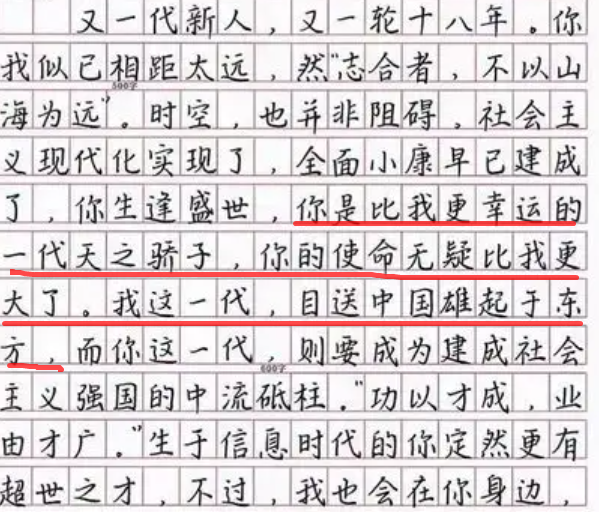 又一代新人，又一轮十八年。你
我似已相距太远，然“志合者，不以山
500字
海为远”。时空，也并非阻碍，社会主
义现代化实现了，全面小康早已建成
了，你生逢盛世，你是比我更幸运的
一代天之骄子，你的使命无疑比我更
大了。我这一代，目送中国雄起于东
方，而你这一代，则要成为建成社会
600字
主义强国的中流砥柱。“功以才成，业
由才广。”生于信息时代的你定然更有
超世之才，不过，我也会在你身边，